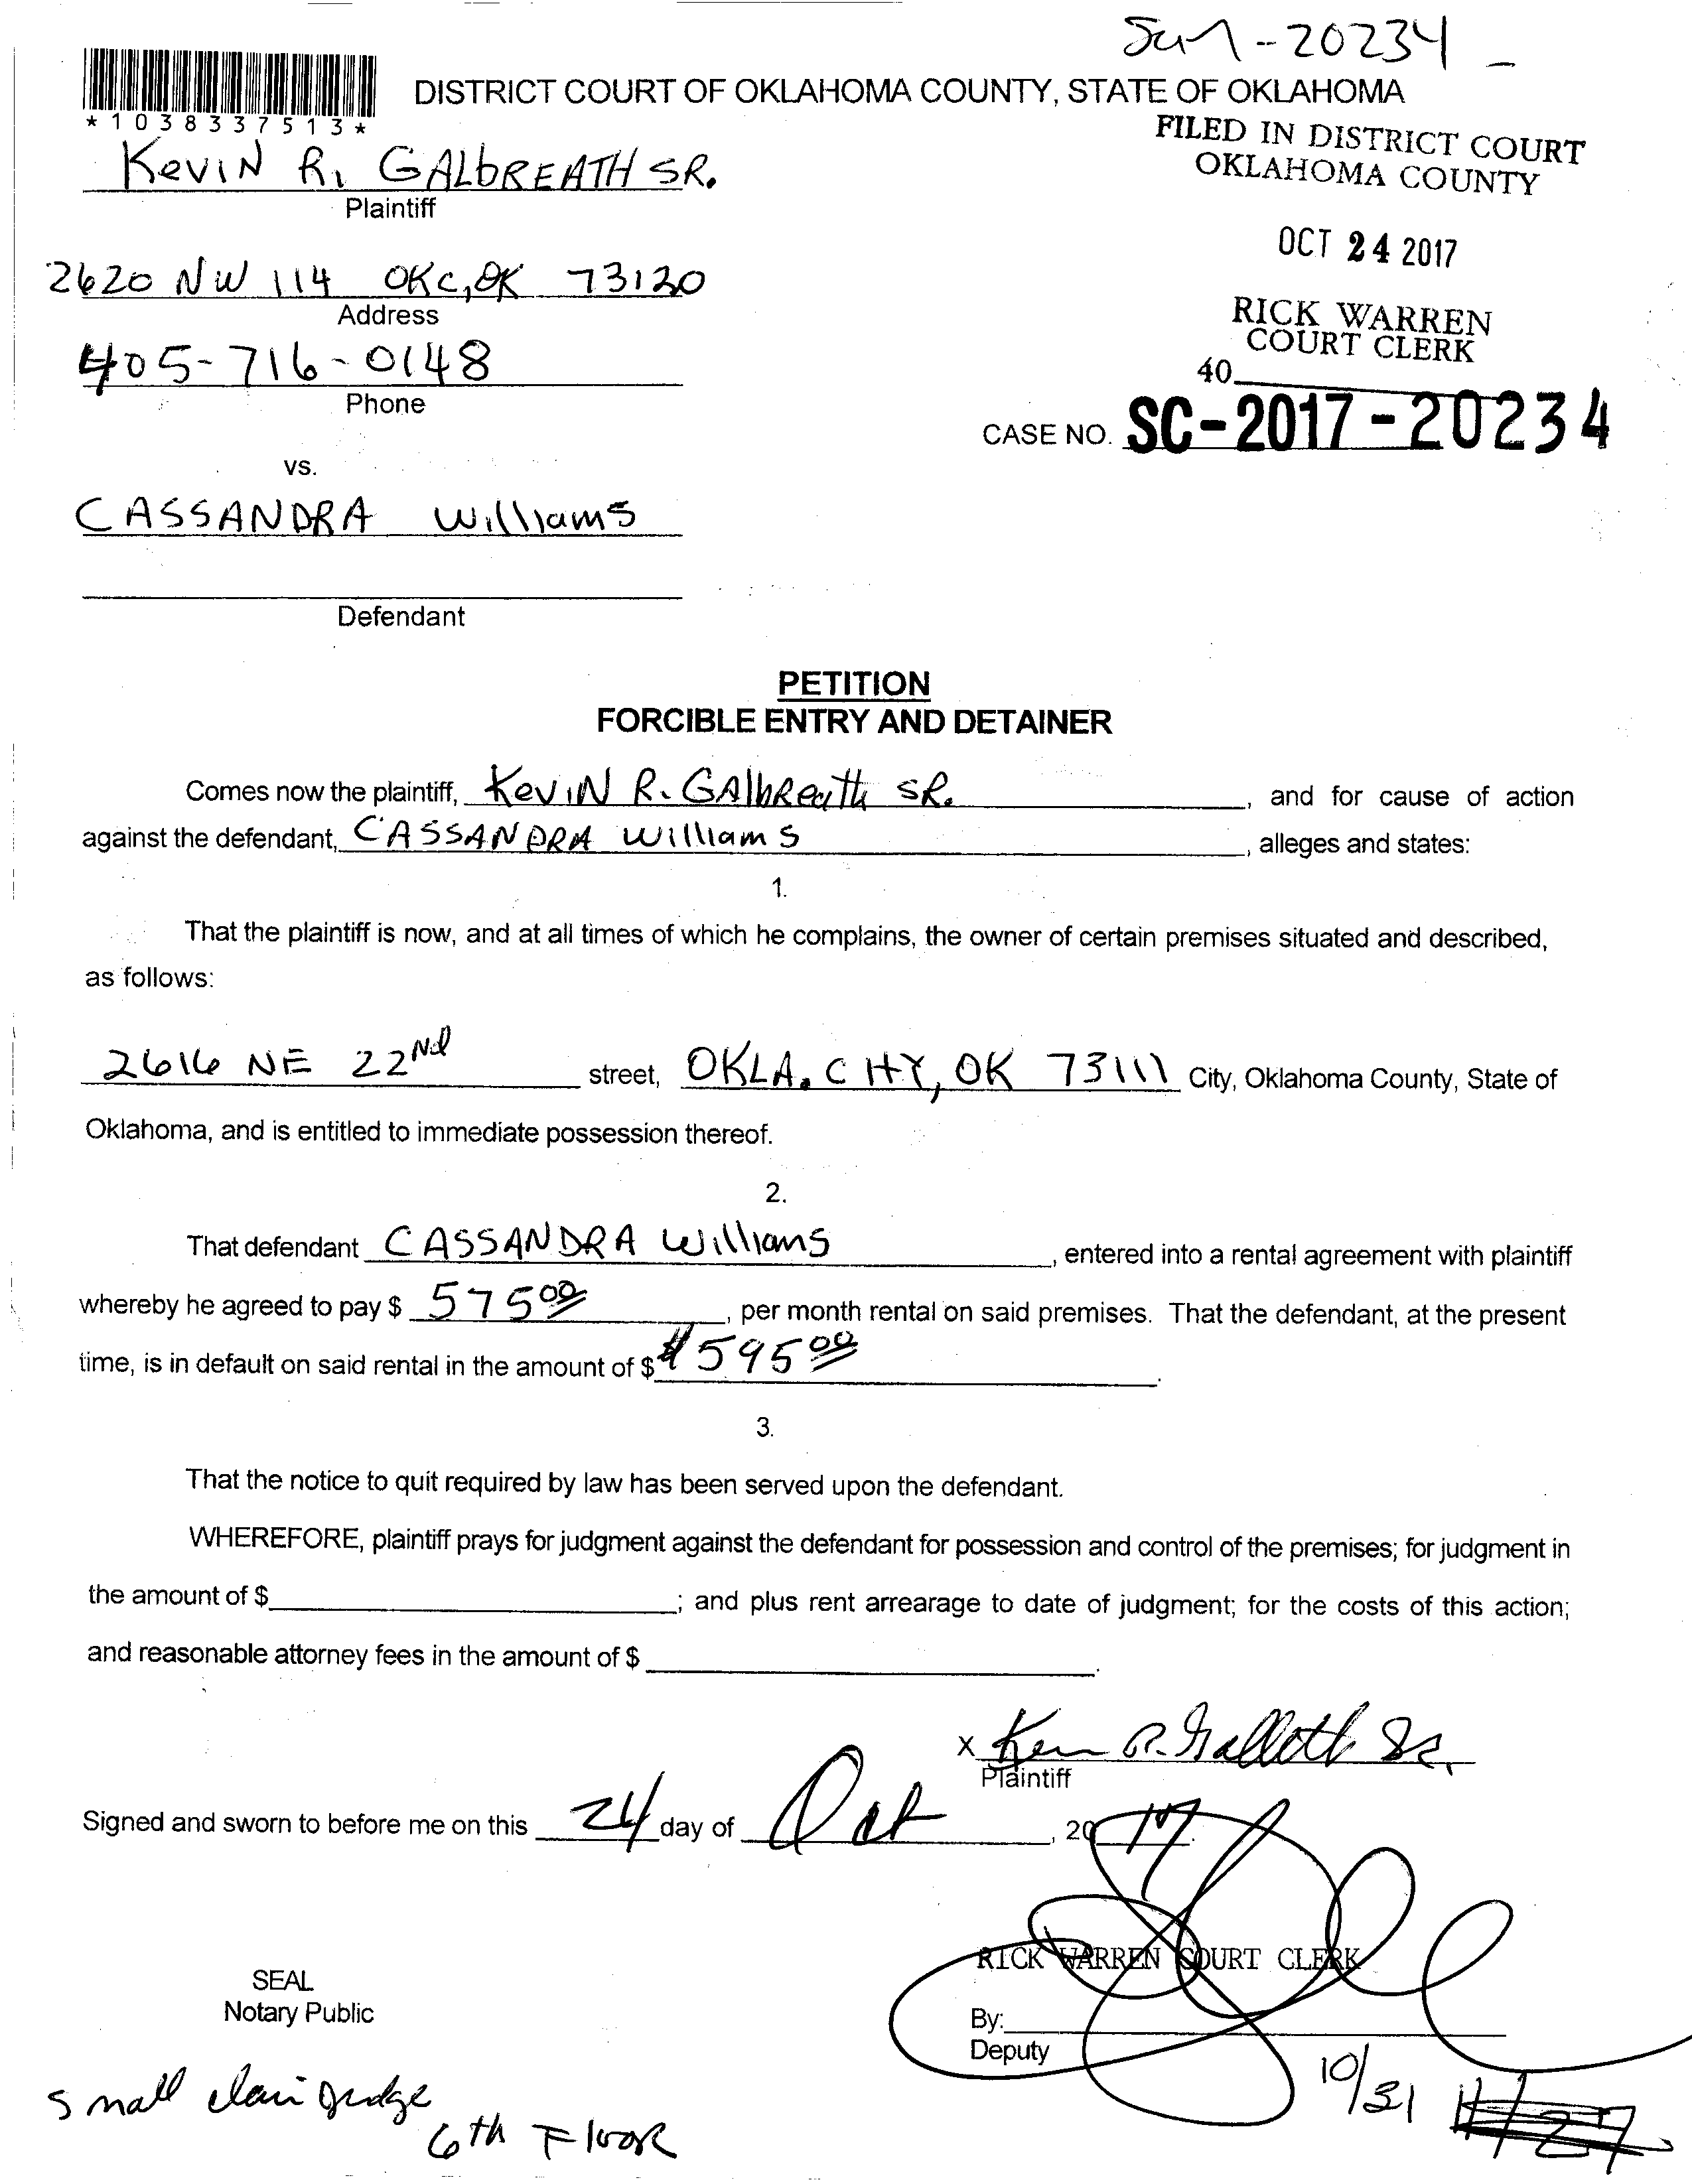 -20234
DISTRICT COURT OF OKLAHOMA COUNTY, STATE OF OKLAHOMA
*1038337513*
FILED IN DISTRICT COURT
OKLAHOMA COUNTY
KEVIN R. GALbREATH SR.
Plaintiff
OCT 24 2017
2620 NW 114 OKC, OK 73120
Address
RICK WARREN
COURT CLERK
405-716-0148
Phone
40
CASE NO. SC-2017-20234
vs.
CASSANDRA Williams
Defendant
PETITION
FORCIBLE ENTRY AND DETAINER
Comes now the plaintiff, KEVIN R. GAlbReath SR. , and for cause of action
against the defendant, CASSANDRA Williams , alleges and states:
1.
That the plaintiff is now, and at all times of which he complains, the owner of certain premises situated and described,
as follows:
2616 NE 22Nd street, OKLA. CITY, OK 73111 City, Oklahoma County, State of
Oklahoma, and is entitled to immediate possession thereof.
2.
That defendant CASSANDRA Williams , entered into a rental agreement with plaintiff
whereby he agreed to pay $ 575.00 , per month rental on said premises. That the defendant, at the present
time, is in default on said rental in the amount of $ $595.00 .
3.
That the notice to quit required by law has been served upon the defendant.
WHEREFORE, plaintiff prays for judgment against the defendant for possession and control of the premises; for judgment in
the amount of $ ; and plus rent arrearage to date of judgment; for the costs of this action;
and reasonable attorney fees in the amount of $ .
X Kevin R. Galbreath Sr.
Plaintiff
Signed and sworn to before me on this 24 day of Oct , 20 17.
RICK WARREN COURT CLERK
SEAL
Notary Public
By:
Deputy
10/31 11/27
Small claim Judge
6th FlooR